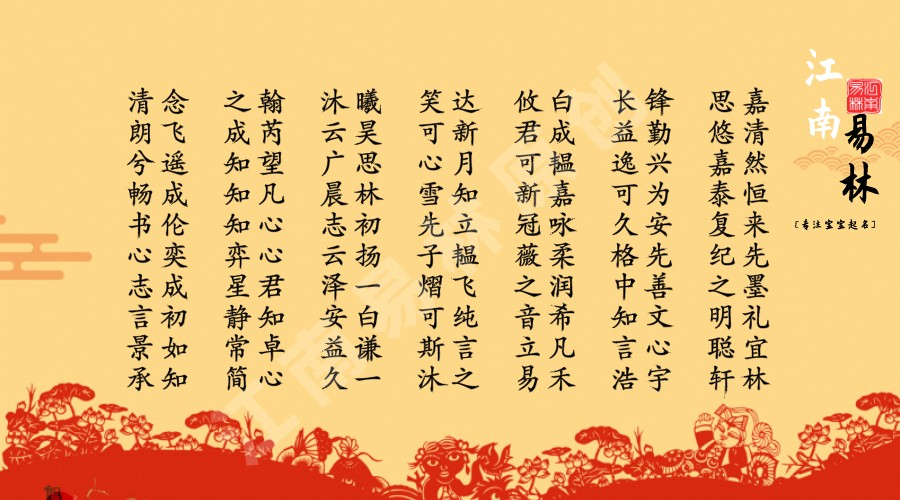 江南易林
江南易林
[专注宝宝起名]
嘉清然恒来先墨礼宜林
思悠嘉泰复纪之明聪轩
锋勤兴为安先善文心宇
长益逸可久格中知言浩
白成韫嘉咏柔润希凡禾
攸君可新冠薇之音立易
达新月知立韫飞纯言之
笑可心雪先子熠可斯沐
曦昊思林初扬一白谦一
沐云广晨志云泽安益久
翰芮望凡心心君知卓心
之成知知知弈星静常简
念飞遥成伦奕成初如知
清朗兮畅书心志言景承
江南易林原创